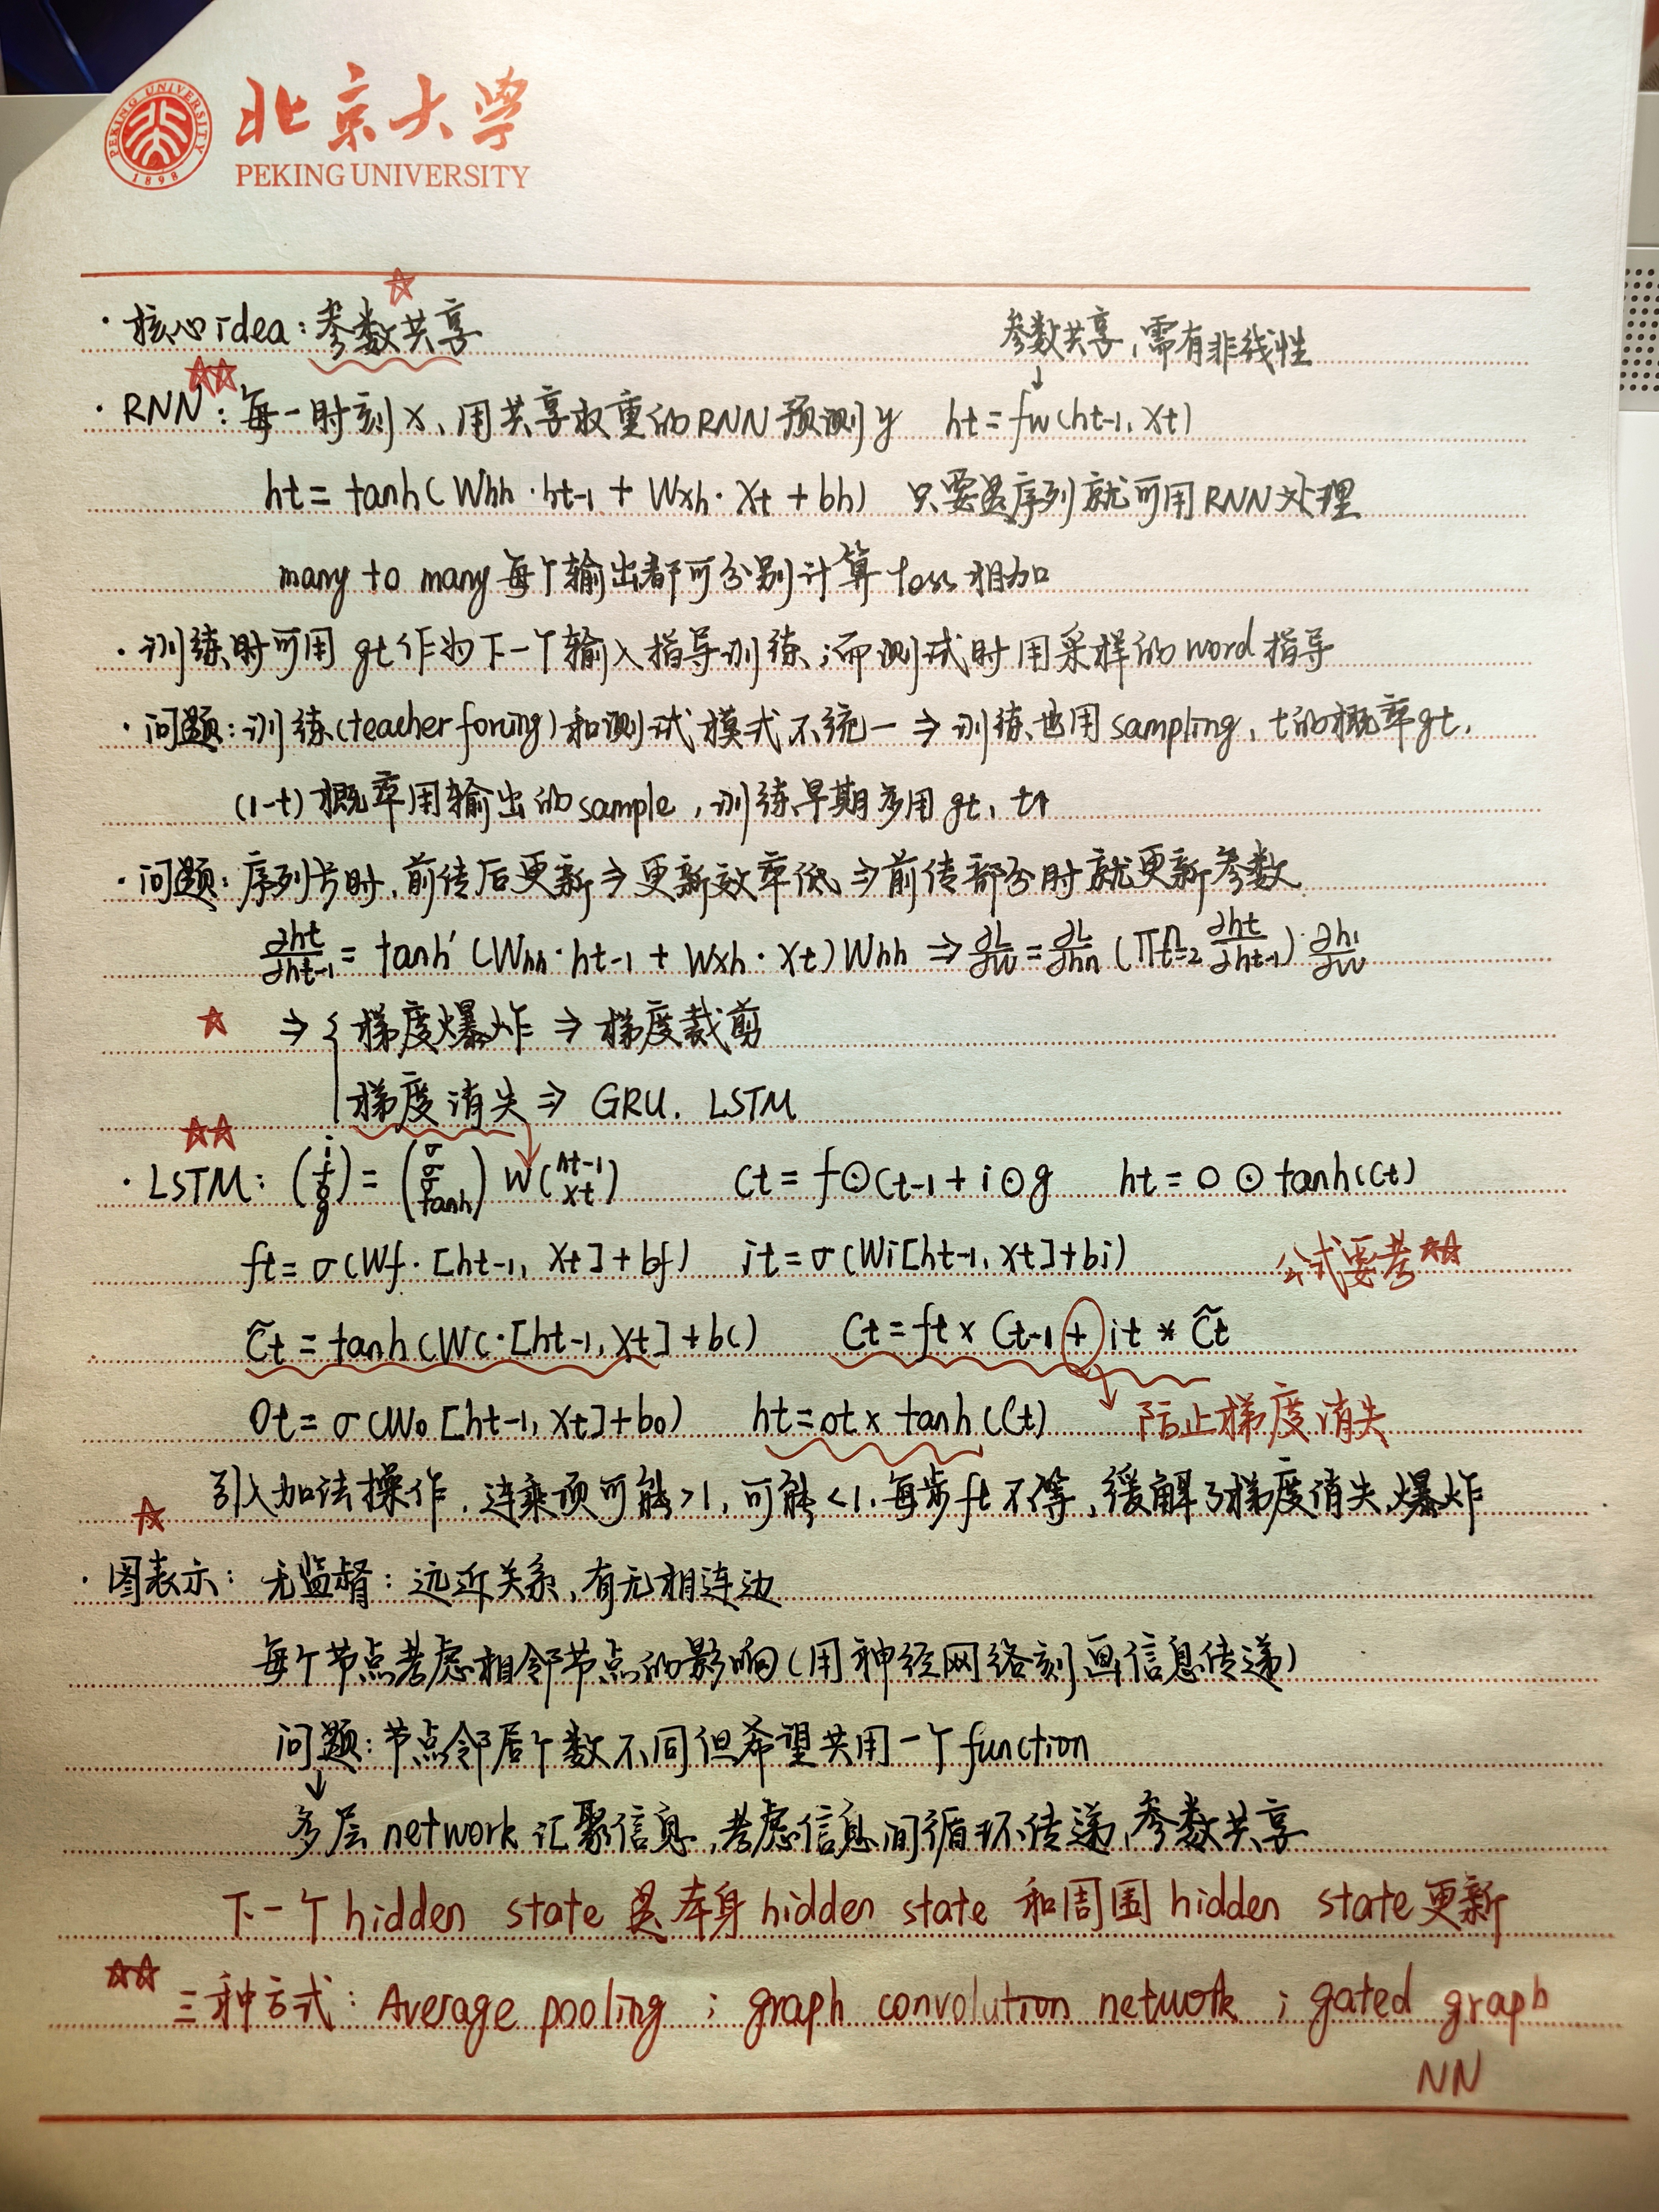 北京大学
PEKING UNIVERSITY
PEKING UNIVERSITY
1898
· 核心idea: 参数共享
参数共享,需有非线性
· RNN: 每一时刻x、用共享权重的RNN预测y ht=fw(ht-1, xt)
ht = tanh(Whh·ht-1 + Wxh·Xt + bh) 只要是序列就可用RNN处理
many to many 每个输出都可分别计算loss相加
· 训练时可用gt作为下一个输入指导训练;而测试时用采样的word指导
· 问题: 训练(teacher forcing)和测试模式不统一 ⇒ 训练也用sampling, t的概率gt,
(1-t)概率用输出的sample, 训练早期多用gt, t↑
· 问题: 序列长时,前传后更新⇒更新效率低⇒前传部分时就更新参数
∂ht/∂ht-1 = tanh'(Whh·ht-1 + Wxh·Xt)Whh ⇒ ∂L/∂W = ∂L/∂hn (Π^n_{t=2} ∂ht/∂ht-1)·∂h1/∂W
⇒ { 梯度爆炸 ⇒ 梯度裁剪
梯度消失 ⇒ GRU. LSTM
· LSTM: (i f g) = (σ σ σ tanh) W(ht-1 xt) Ct = f⊙Ct-1 + i⊙g ht = o⊙tanh(Ct)
ft = σ(Wf·[ht-1, Xt]+bf) it = σ(Wi[ht-1, Xt]+bi) 公式要考☆☆
C̃t = tanh(Wc·[ht-1, Xt]+bc) Ct = ft × Ct-1 + it * C̃t
Ot = σ(Wo[ht-1, Xt]+bo) ht = ot × tanh(Ct) 防止梯度消失
引入加法操作,连乘项可能>1,可能<1,每步ft不等,缓解了梯度消失、爆炸
· 图表示: 无监督: 远近关系,有无相连边
每个节点考虑相邻节点的影响(用神经网络刻画信息传递)
问题: 节点邻居个数不同但希望共用一个function
↓
多层network汇聚信息,考虑信息间循环传递,参数共享
下一个hidden state是本身hidden state和周围hidden state更新
☆☆ 三种方式: Average pooling ; graph convolution network ; gated graph
NN